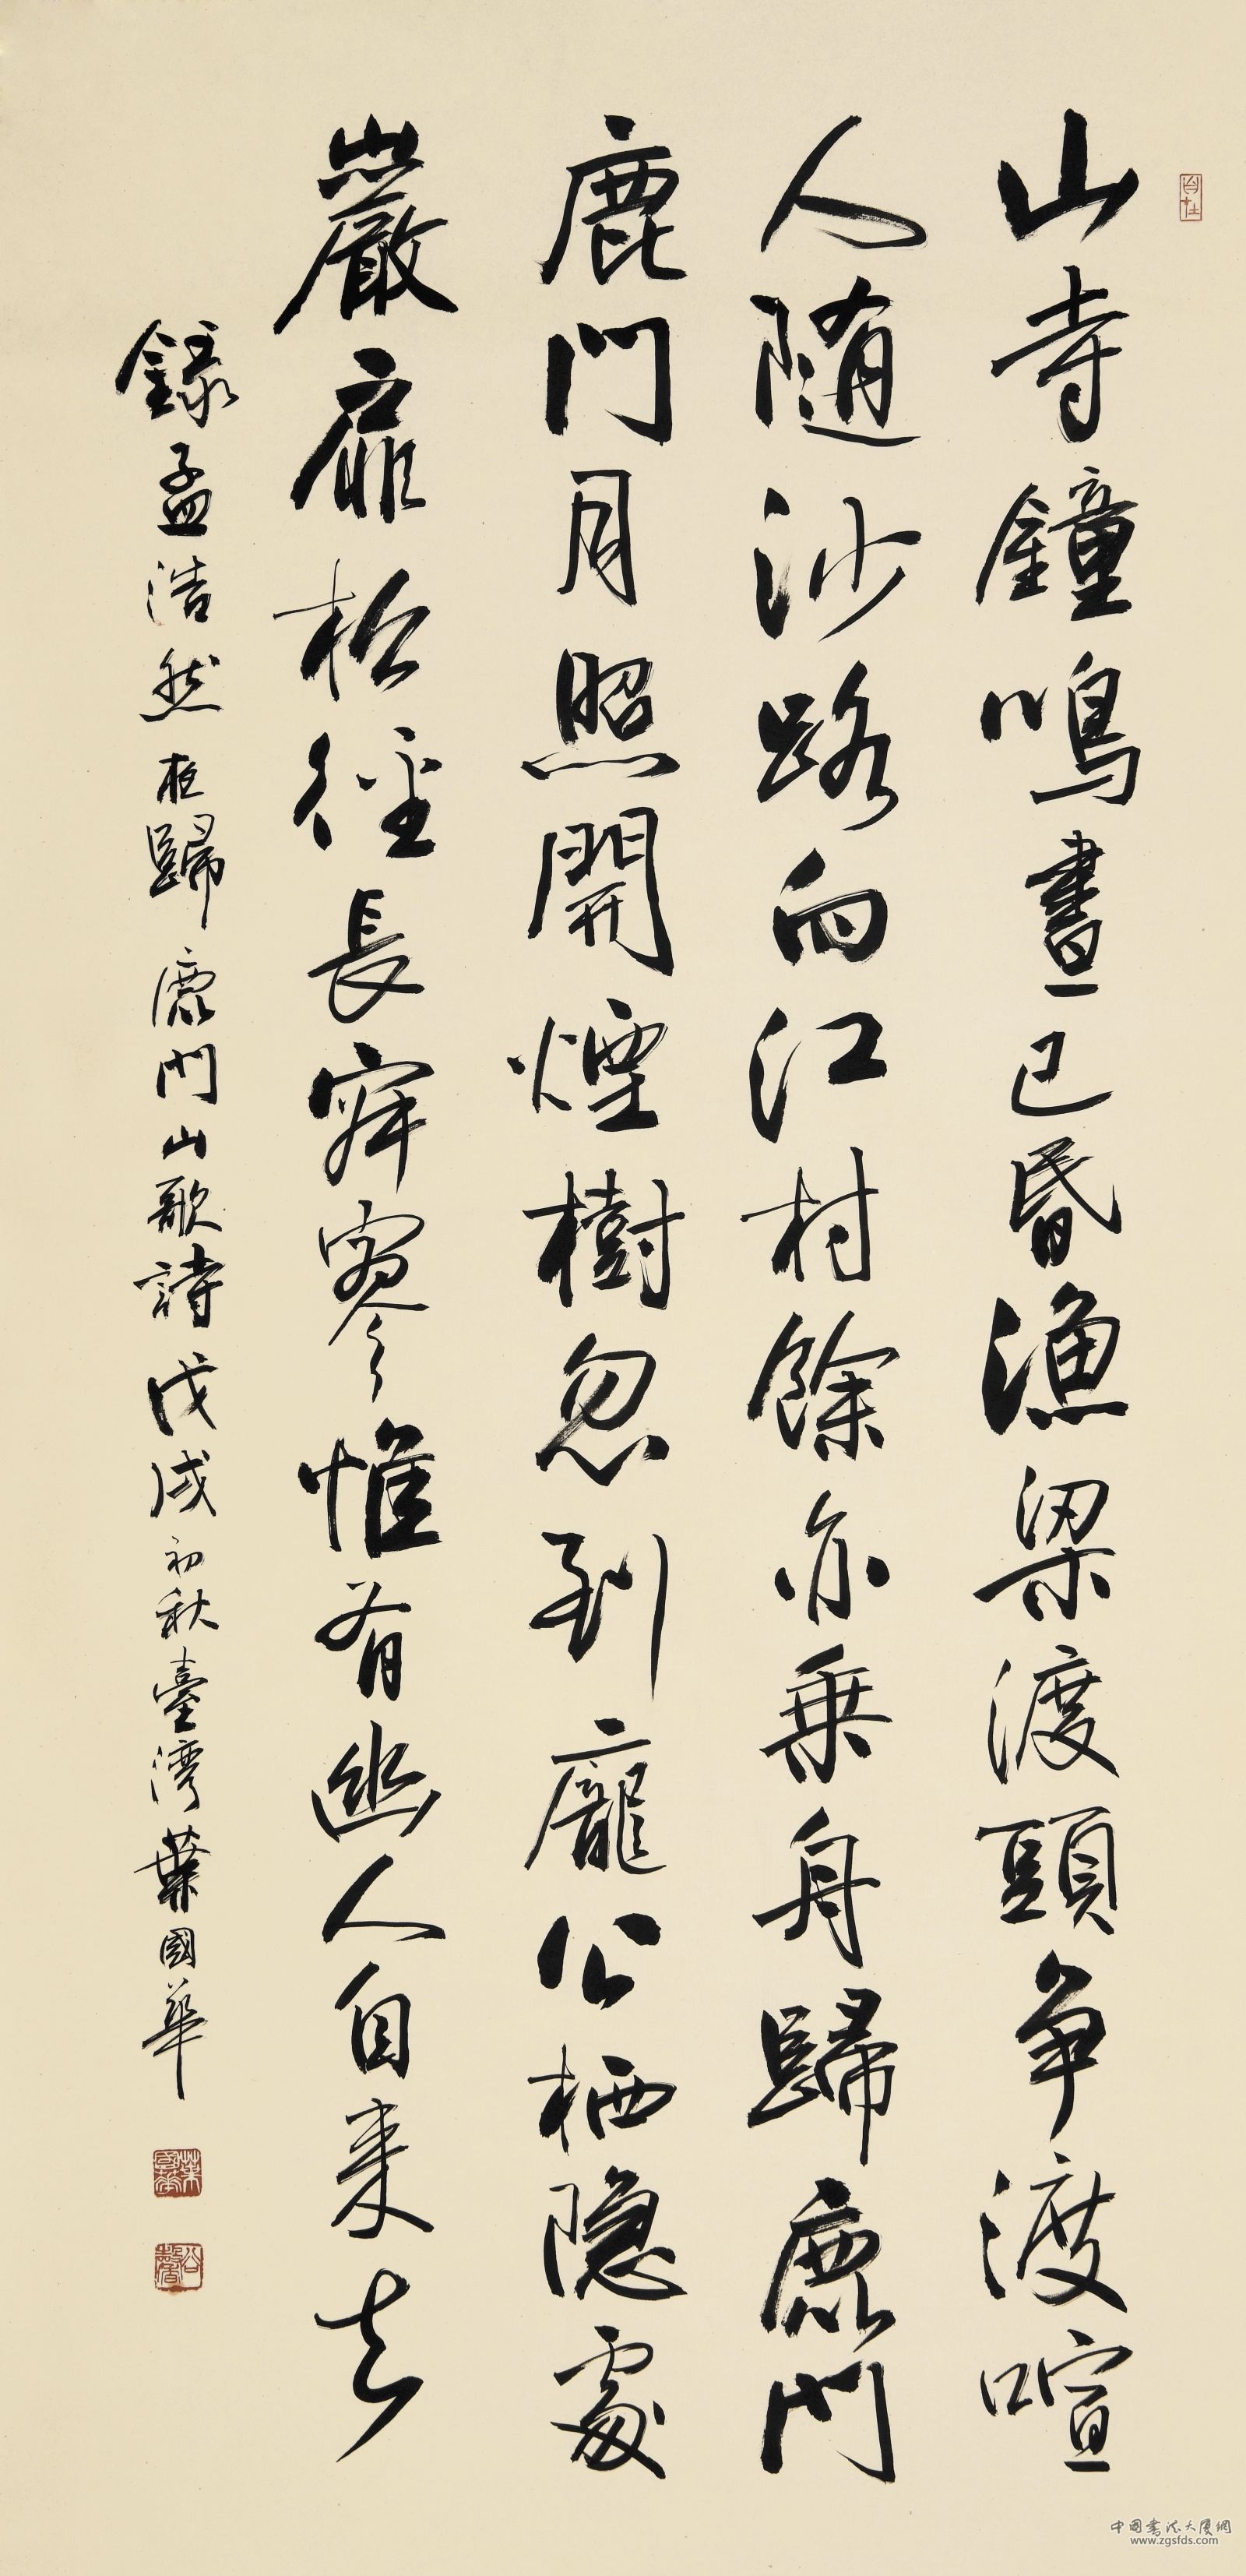 自在
山寺鐘鳴晝已昏漁梁渡頭争渡喧
人随沙路向江村餘亦乗舟歸鹿門
鹿門月照開煙樹忽到龐公栖隱處
巖扉松徑長寂寥惟有幽人自来去
錄孟浩然夜歸鹿門山歌詩戊戌初秋臺灣葉國華
葉國華
谷馨
中國書法大厦網
www.zgsfds.com